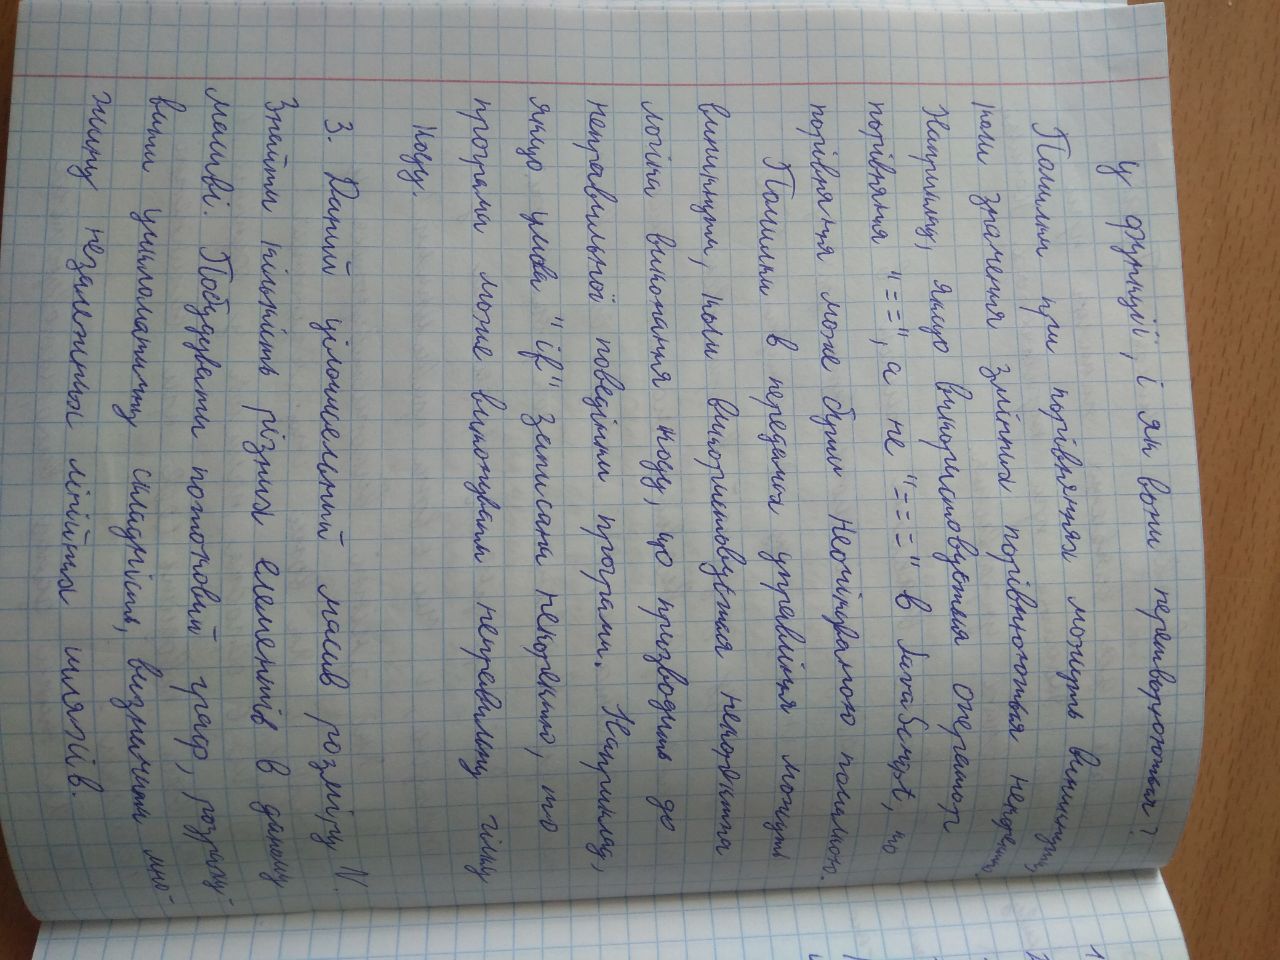 у функції, і як вони перетворюються?
Помилки при порівняннях можуть виникнути,
коли значення змінних порівнюються некоректно.
Наприклад, якщо використовується оператор
порівняння "==", а не "===" в JavaScript, то
порівняння може бути неочікуваною помилкою.
Помилки в передачах управління можуть
виникнути, коли використовується некоректна
логіка виконання коду, що призводить до
неправильної поведінки програми. Наприклад,
якщо умова "if" записана некоректно, то
програма може виконувати неправильну гілку
коду.
3. Даний цілочисельний масив розміру N.
Знайти кількість різних елементів в даному
масиві. Побудувати потоковий граф, розраху-
вати цикломатичну складність, визначити мно-
жину незалежних лінійних шляхів.